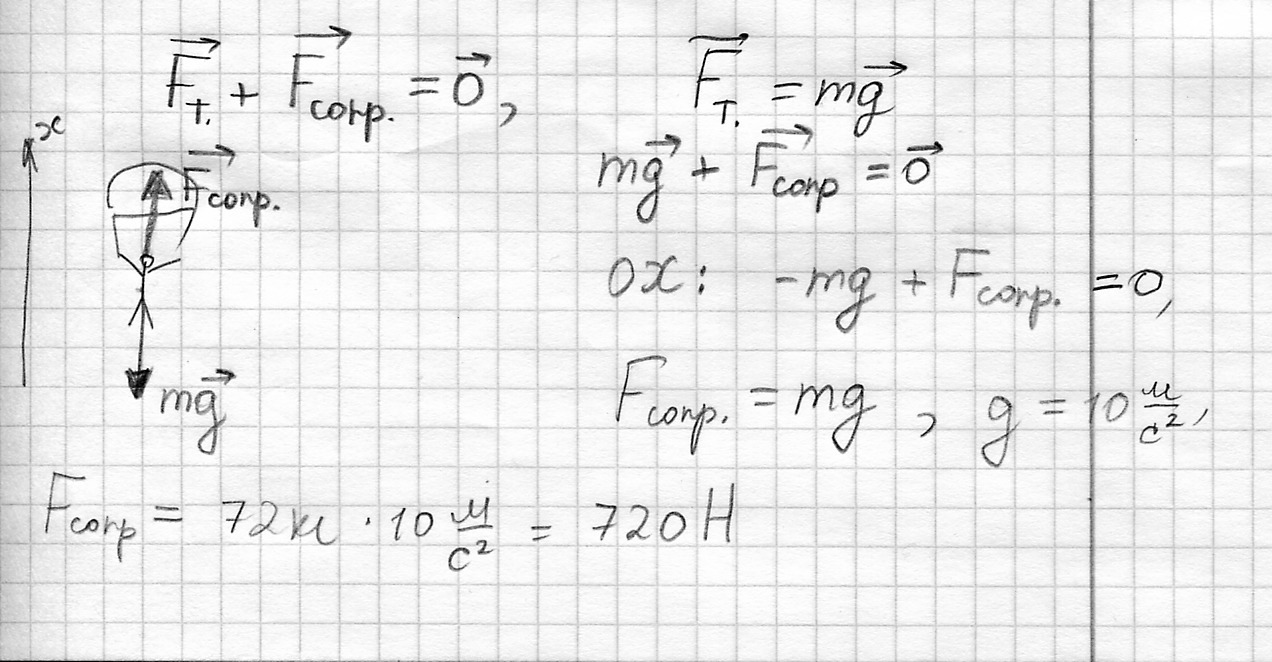 F⃗т. + F⃗сопр. = 0⃗, F⃗т. = mg⃗
x
F⃗сопр.
mg⃗ + F⃗сопр = 0⃗
OX: -mg + Fсопр. = 0,
mg⃗
Fсопр. = mg, g = 10 м/с²,
Fсопр = 72кг · 10 м/с² = 720 Н